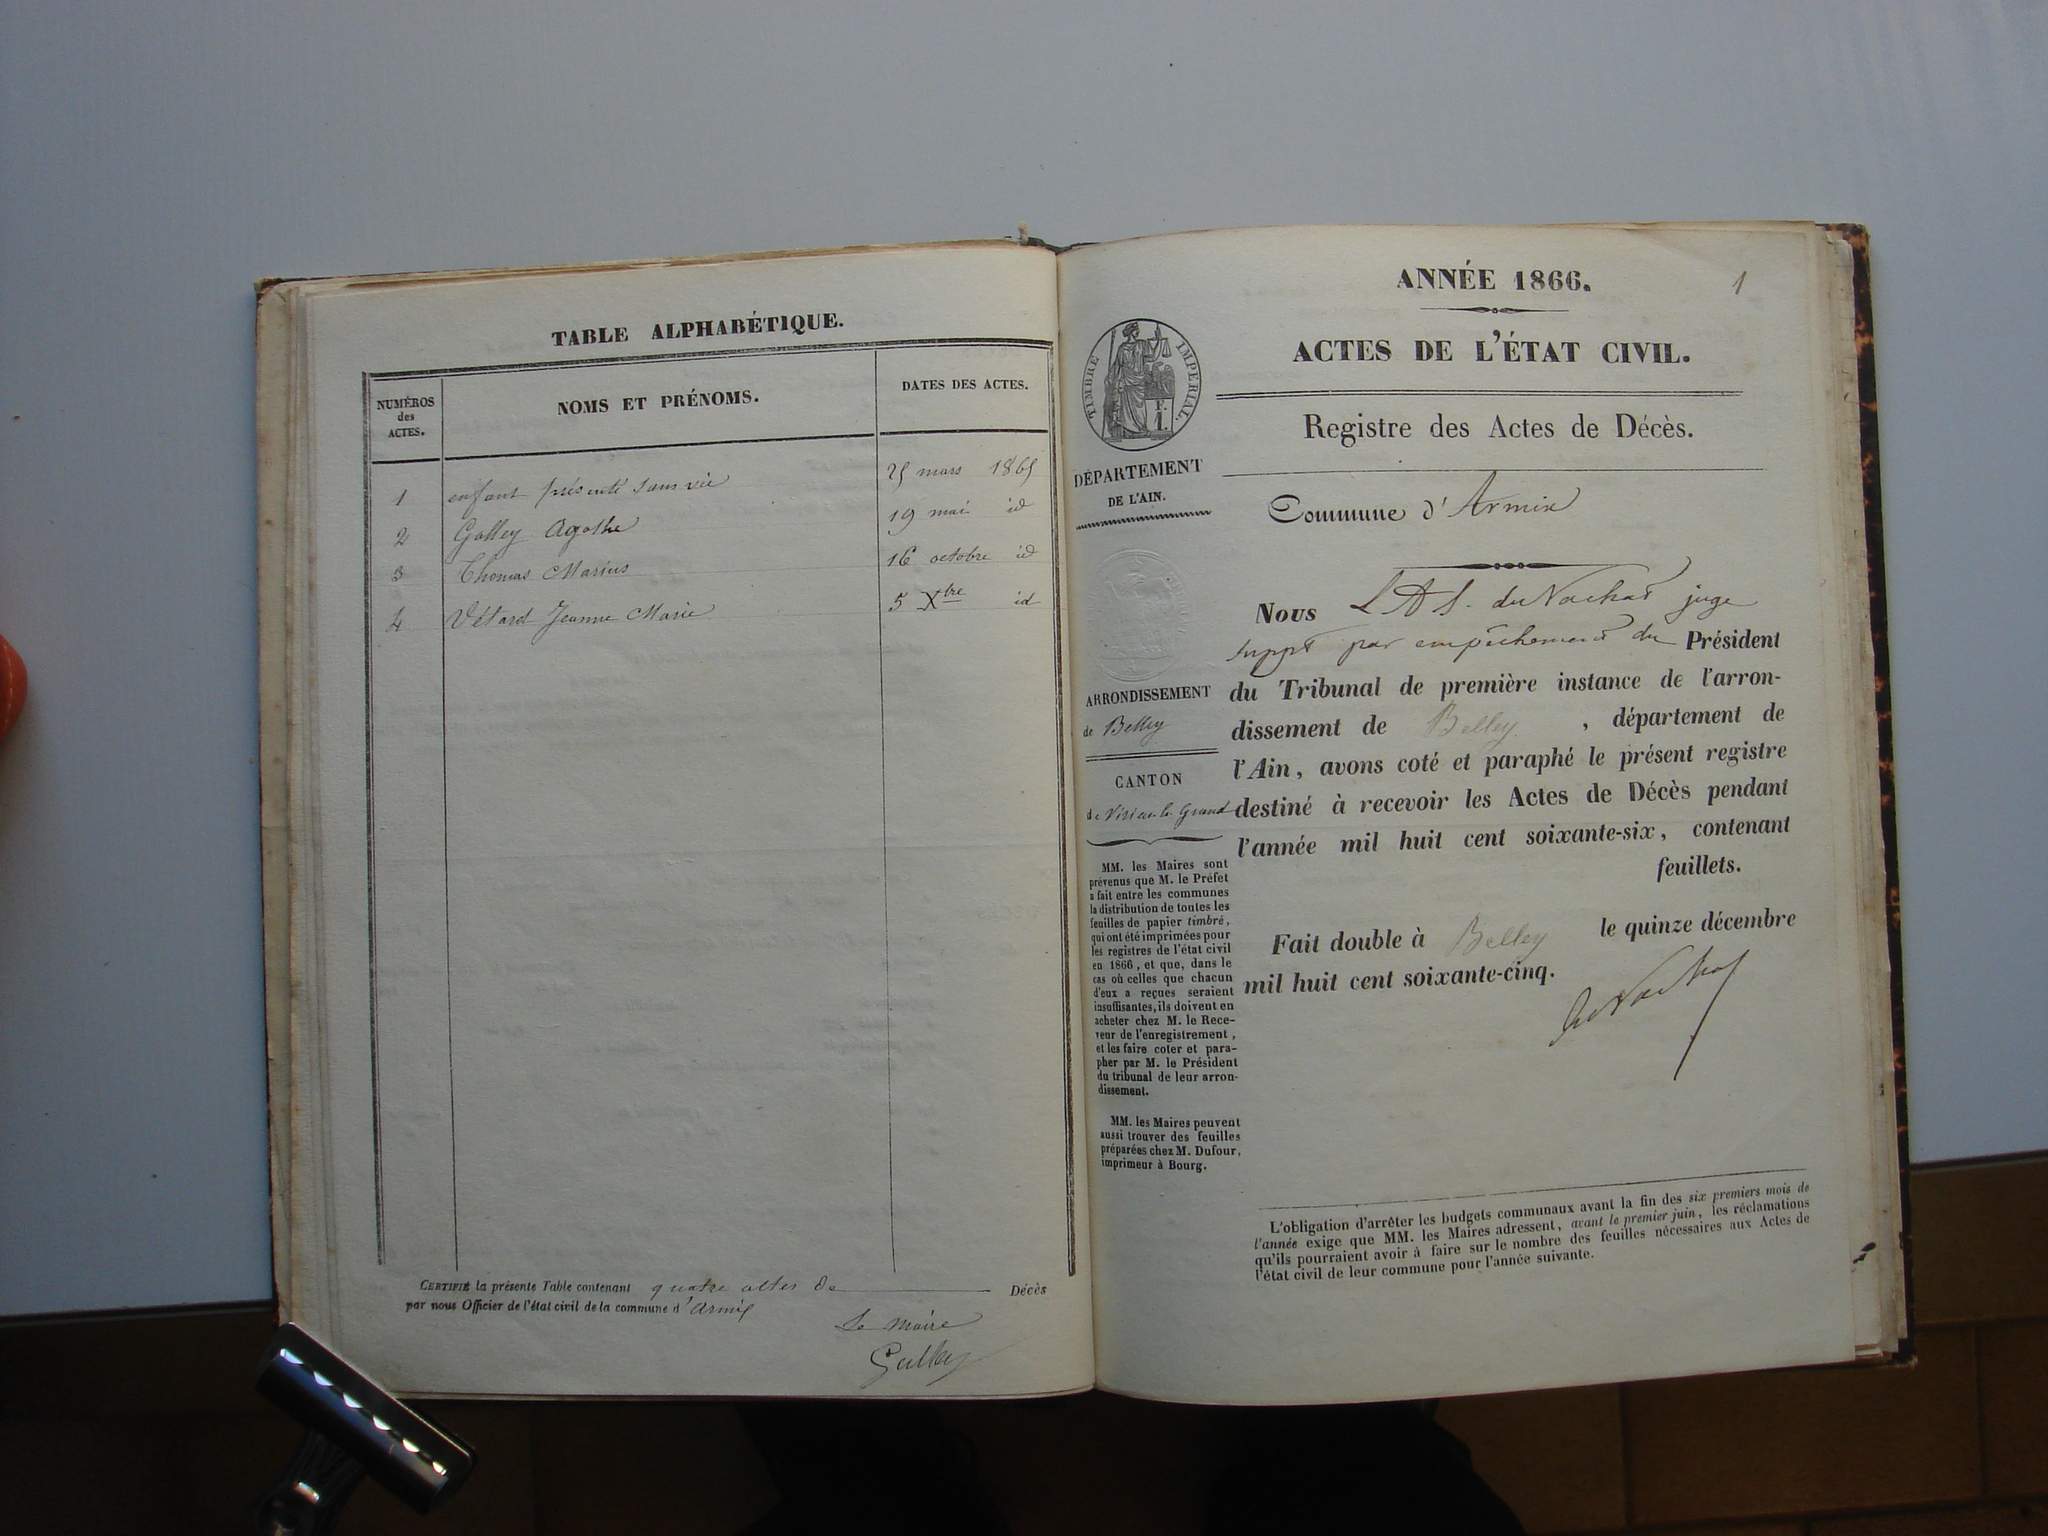 TABLE ALPHABÉTIQUE.
NUMÉROS des ACTES.
NOMS ET PRÉNOMS.
DATES DES ACTES.
1 enfant présenté sans vie 25 mars 1865
2 Galley Agathe 19 mai id
3 Thomas Marius 16 octobre id
4 Vétard Jeanne Marie 5 Xbre id
CERTIFIÉ la présente Table contenant quatre actes de Décès
par nous Officier de l'état civil de la commune d'Armix
Le Maire
Galley
ANNÉE 1866.
1
ACTES DE L'ÉTAT CIVIL.
Registre des Actes de Décès.
TIMBRE IMPÉRIAL.
DÉPARTEMENT
DE L'AIN.
ARRONDISSEMENT
de Belley
CANTON
de Virieu le Grand
MM. les Maires sont
prévenus que M. le Préfet
a fait entre les communes
la distribution de toutes les
feuilles de papier timbré,
qui ont été imprimées pour
les registres de l'état civil
en 1866, et que, dans le
cas où celles que chacun
d'eux a reçues seraient
insuffisantes, ils doivent en
acheter chez M. le Rece-
veur de l'enregistrement,
et les faire coter et para-
pher par M. le Président
du tribunal de leur arron-
dissement.
MM. les Maires peuvent
aussi trouver des feuilles
préparées chez M. Dufour,
imprimeur à Bourg.
Commune d'Armix
Nous du Nachat juge
suppt par empêchement du Président
du Tribunal de première instance de l'arron-
dissement de Belley, département de
l'Ain, avons coté et paraphé le présent registre
destiné à recevoir les Actes de Décès pendant
l'année mil huit cent soixante-six, contenant
feuillets.
Fait double à Belley le quinze décembre
mil huit cent soixante-cinq.
L'obligation d'arrêter les budgets communaux avant la fin des six premiers mois de
l'année exige que MM. les Maires adressent, avant le premier juin, les réclamations
qu'ils pourraient avoir à faire sur le nombre des feuilles nécessaires aux Actes de
l'état civil de leur commune pour l'année suivante.